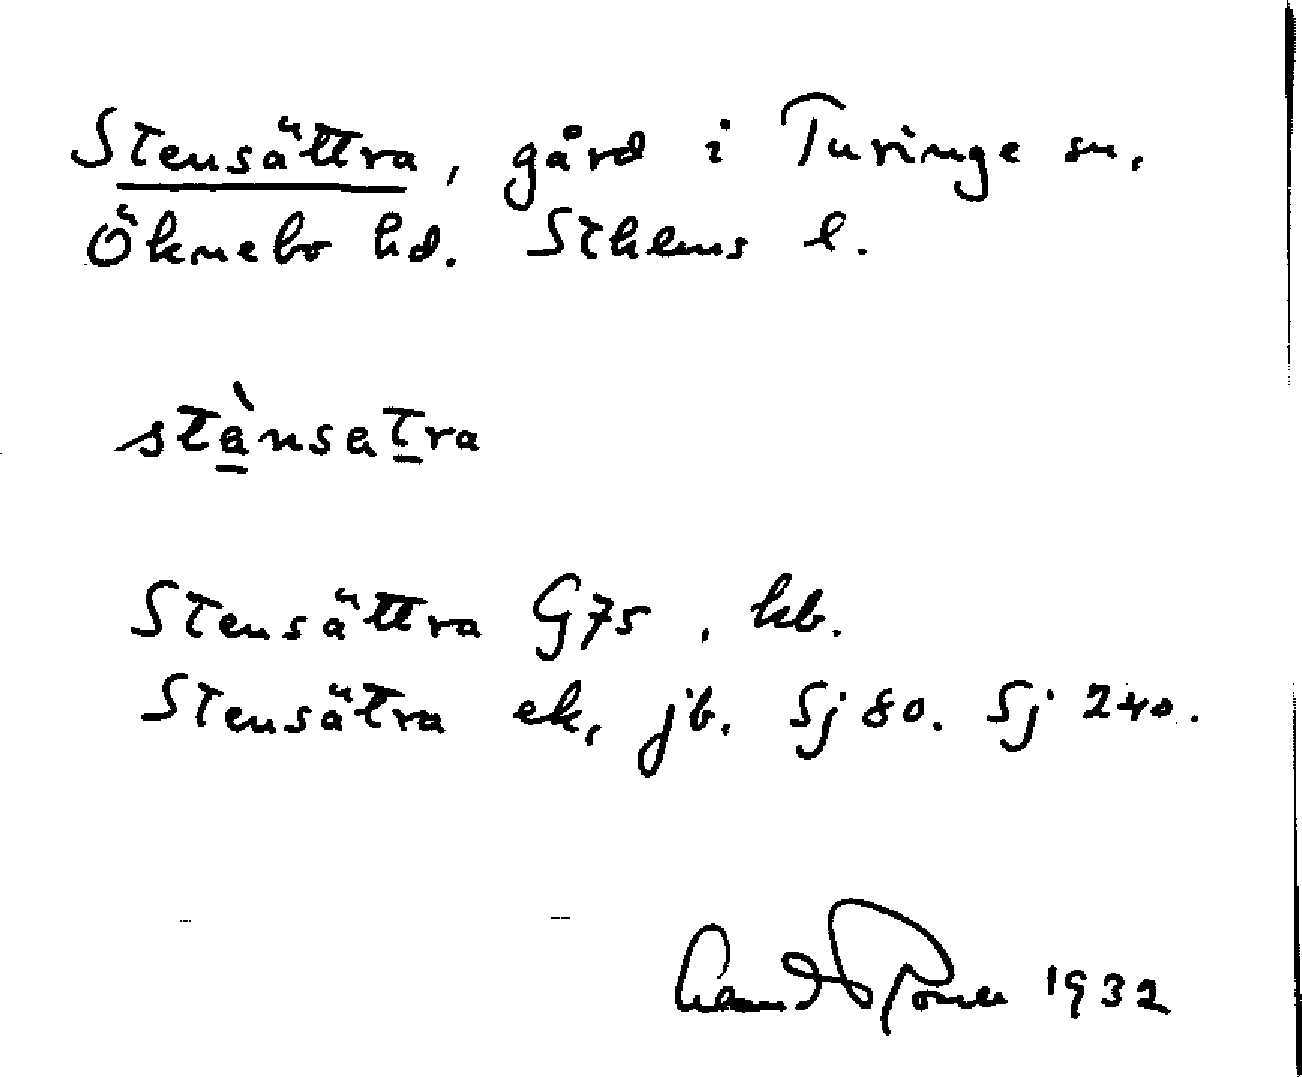 Stensättra, gård i Turinge sn,
Öknebo hd. Sthlms l.
stànsatra
Stensättra G75, kb.
Stensätra ek, jb. Sj 80. Sj 240.
1932